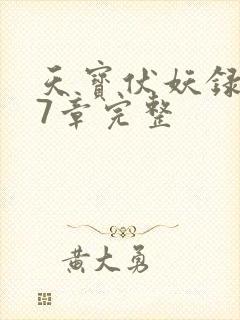 天寳伏妖録
7章完整
黄大勇